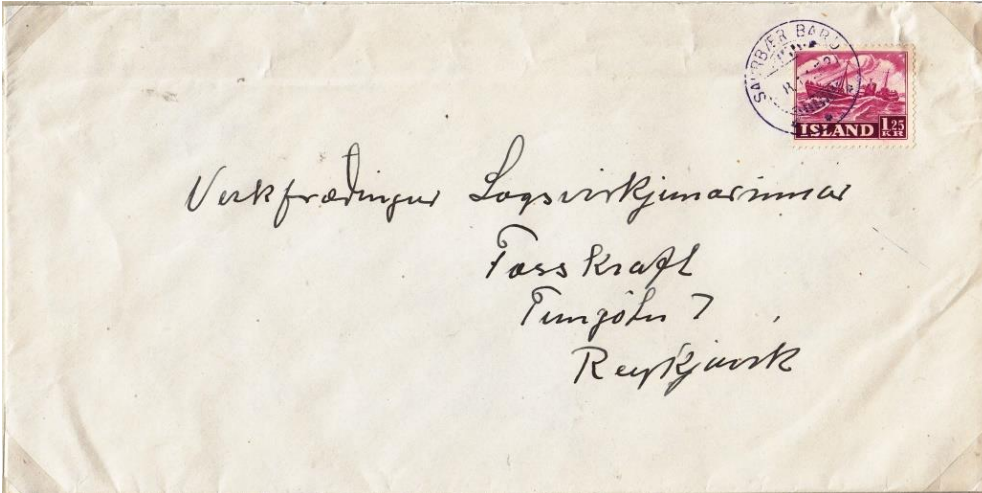 SAURBÆR BARÐ
ÍSLAND 1 25
KR
Verkfræðingur Sogsvirkjunarinnar
Fosskraft
7
Reykjavík